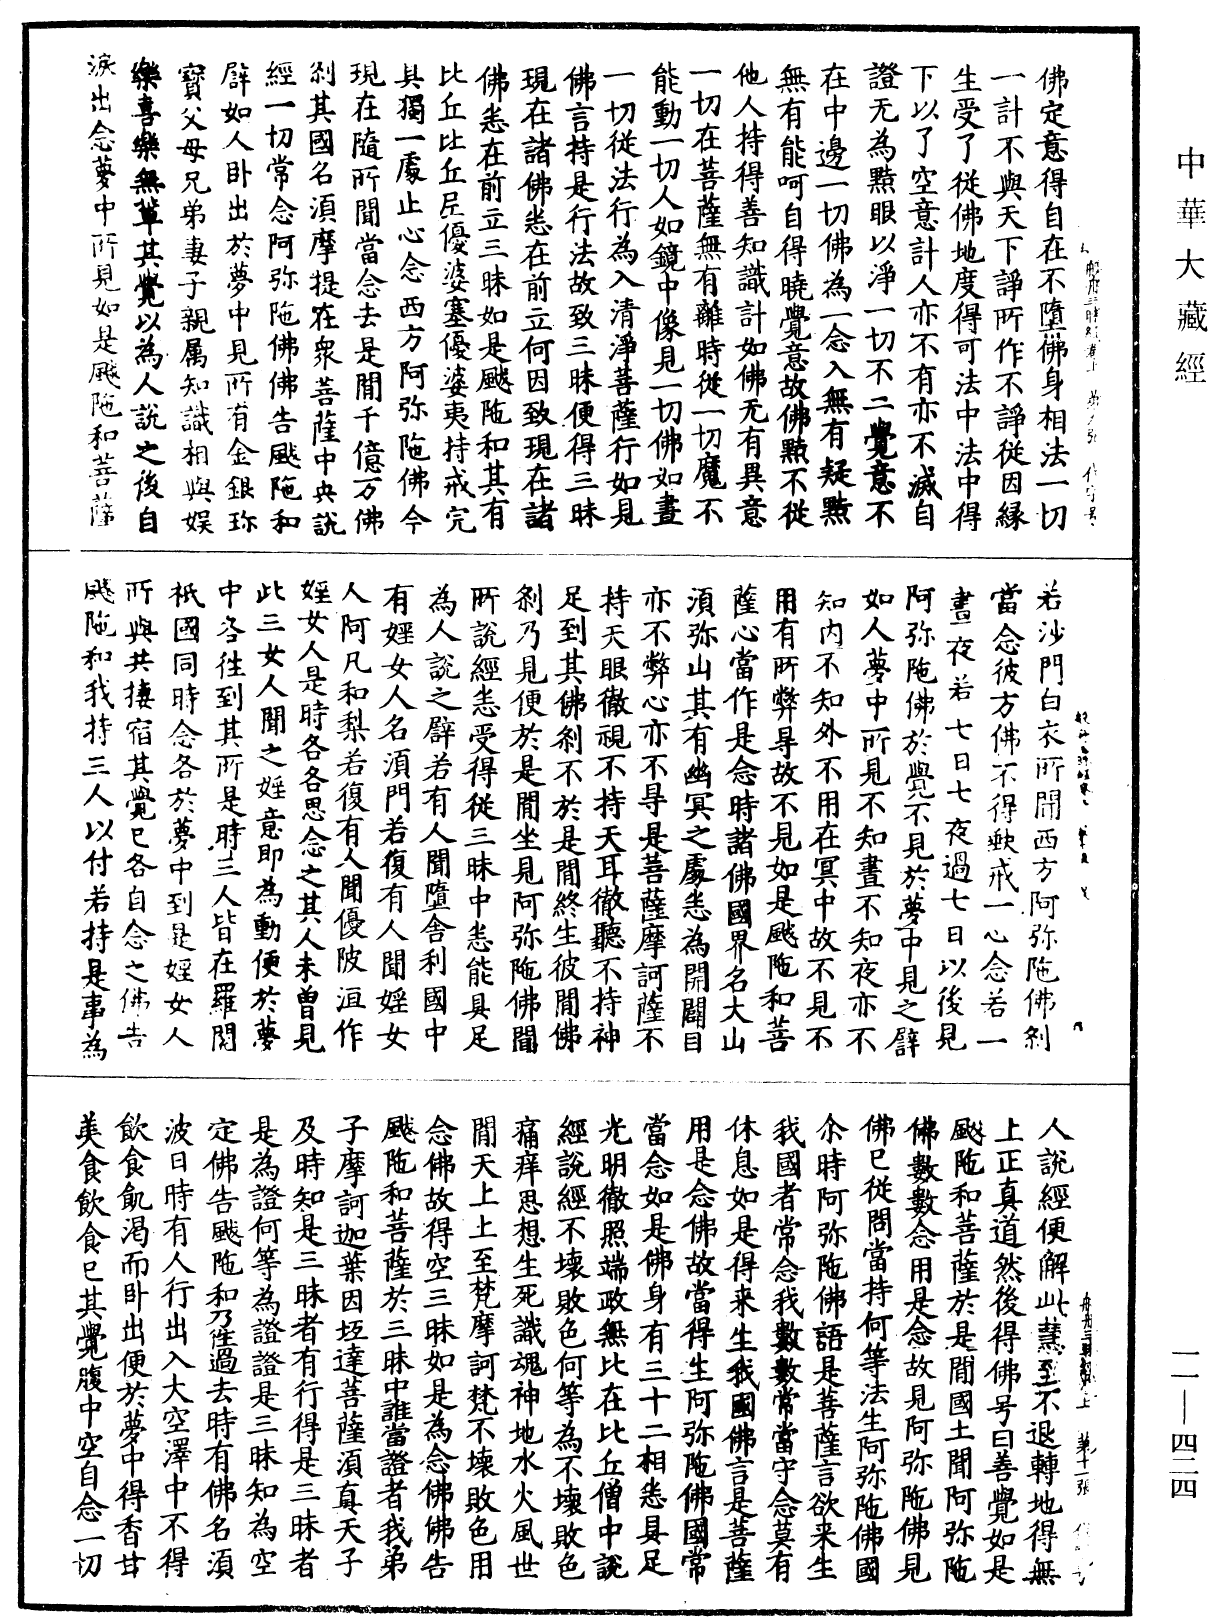 中華大藏經
佛定意得自在不墮佛身相法一切
一計不與天下諍所作不諍從因緣
生受了從佛地度得可法中法中得
下以了空意計人亦不有亦不滅自
證无為黠眼以淨一切不二覺意不
在中邊一切佛為一念入無有疑黠
無有能呵自得曉覺意故佛黠不從
他人持得善知識計如佛无有異意
一切在菩薩無有離時從一切魔不
能動一切人如鏡中像見一切佛如畫
一切從法行為入清淨菩薩行如見
佛言持是行法故致三昧便得三昧
現在諸佛悉在前立何因致現在諸
佛悉在前立三昧如是颰陁和其有
比丘比丘尼優婆塞優婆夷持戒完
具獨一處止心念西方阿弥陁佛今
現在隨所聞當念去是間千億万佛
剎其國名須摩提在眾菩薩中央說
經一切常念阿弥陁佛佛告颰陁和
辟如人卧出於夢中見所有金銀珎
寶父母兄弟妻子親属知識相與娛
樂喜樂無輩其覺以為人說之後自
淚出念夢中所見如是颰陁和菩薩
若沙門白衣所聞西方阿弥陁佛剎
當念彼方佛不得軼戒一心念若一
晝夜若七日七夜過七日以後見
阿弥陁佛於覺不見於夢中見之辟
如人夢中所見不知晝不知夜亦不
知內不知外不用在冥中故不見不
用有所弊㝵故不見如是颰陁和菩
薩心當作是念時諸佛國界名大山
須弥山其有幽冥之處悉為開闢目
亦不弊心亦不㝵是菩薩摩訶薩不
持天眼徹視不持天耳徹聽不持神
足到其佛剎不於是間終生彼間佛
剎乃見便於是間坐見阿弥陁佛聞
所說經悉受得從三昧中悉能具足
為人說之辟若有人聞墮舍利國中
有婬女人名須門若復有人聞婬女
人阿凡和梨若復有人聞優陂洹作
婬女人是時各各思念之其人未曾見
此三女人聞之婬意即為動便於夢
中各往到其所是時三人皆在羅閱
祇國同時念各於夢中到是婬女人
所與共棲宿其覺已各自念之佛告
颰陁和我持三人以付若持是事為
人說經便解此慧至不退轉地得無
上正真道然後得佛号曰善覺如是
颰陁和菩薩於是間國土聞阿弥陁
佛數數念用是念故見阿弥陁佛見
佛已從問當持何等法生阿弥陁佛國
尒時阿弥陁佛語是菩薩言欲来生
我國者常念我數數常當守念莫有
休息如是得来生我國佛言是菩薩
用是念佛故當得生阿弥陁佛國常
當念如是佛身有三十二相悉具足
光明徹照端政無比在比丘僧中說
經說經不壞敗色何等為不壞敗色
痛痒思想生死識魂神地水火風世
間天上上至梵摩訶梵不壞敗色用
念佛故得空三昧如是為念佛佛告
颰陁和菩薩於三昧中誰當證者我弟
子摩訶迦葉因坻達菩薩須真天子
及時知是三昧者有行得是三昧者
是為證何等為證證是三昧知為空
定佛告颰陁和乃徃過去時有佛名須
波日時有人行出入大空澤中不得
飲食飢渴而卧出便於夢中得香甘
美食飲食已其覺腹中空自念一切
一一—四二四